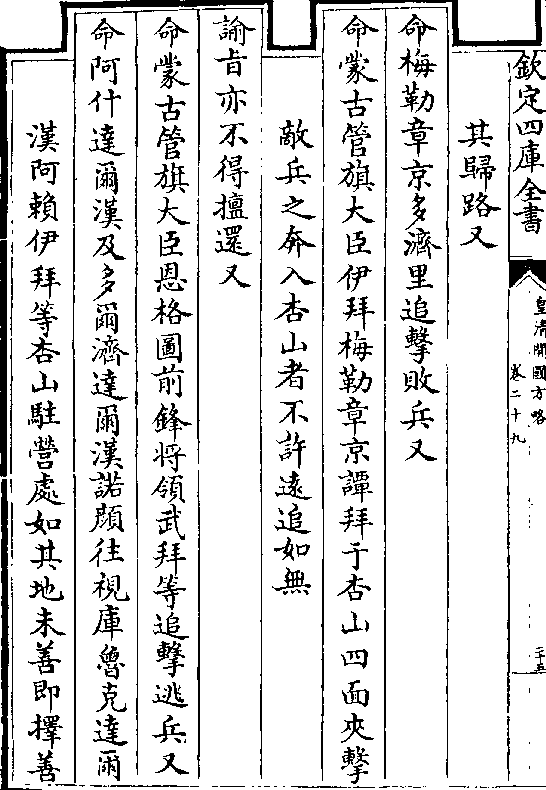 欽定四庫全書
皇清開國方略
卷二十九
二十五
其歸路又
命梅勒章京多濟里追擊敗兵又
命蒙古管旗大臣伊拜梅勒章京譚拜于杏山四面夾擊
敵兵之奔入杏山者不許遠追如無
諭旨亦不得擅還又
命蒙古管旗大臣恩格圖前鋒將領武拜等追擊逃兵又
命阿什達爾漢及多爾濟達爾漢諾顏往視庫魯克達爾
漢阿賴伊拜等杏山駐營處如其地未善即擇善